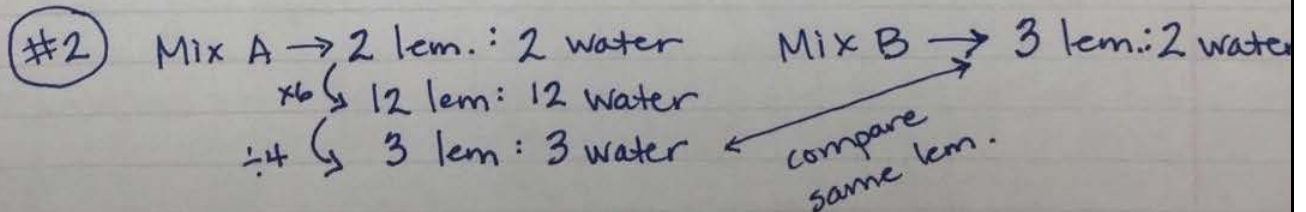 #2 Mix A → 2 lem. : 2 water Mix B → 3 lem.: 2 water
×6 12 lem: 12 water
÷4 3 lem : 3 water
compare
same lem.